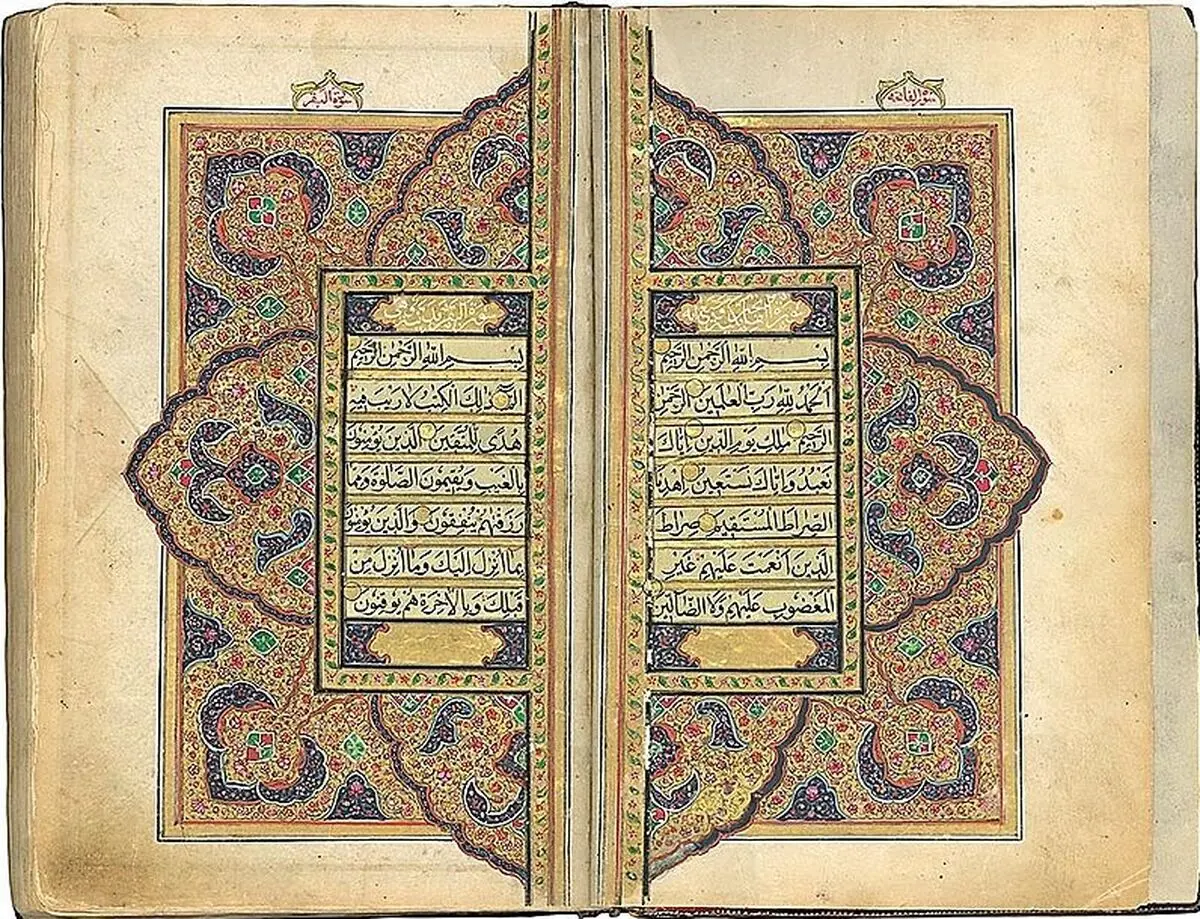 سورة الفاتحة
بسم الله الرحمن الرحيم
الحمد لله رب العلمين الرحمن
الرحيم ملك يوم الدين اياك
نعبد واياك نستعين اهدنا
الصراط المستقيم صراط
الذين انعمت عليهم غير
المغضوب عليهم ولا الضالين
سورة البقر
بسم الله الرحمن الرحيم
الم ذلك الكتب لا ريب فيه
هدى للمتقين الذين يؤمنون
بالغيب ويقيمون الصلوة ومما
رزقنهم ينفقون والذين يؤمنون
بما انزل اليك وما انزل من
قبلك وبالاخرة هم يوقنون